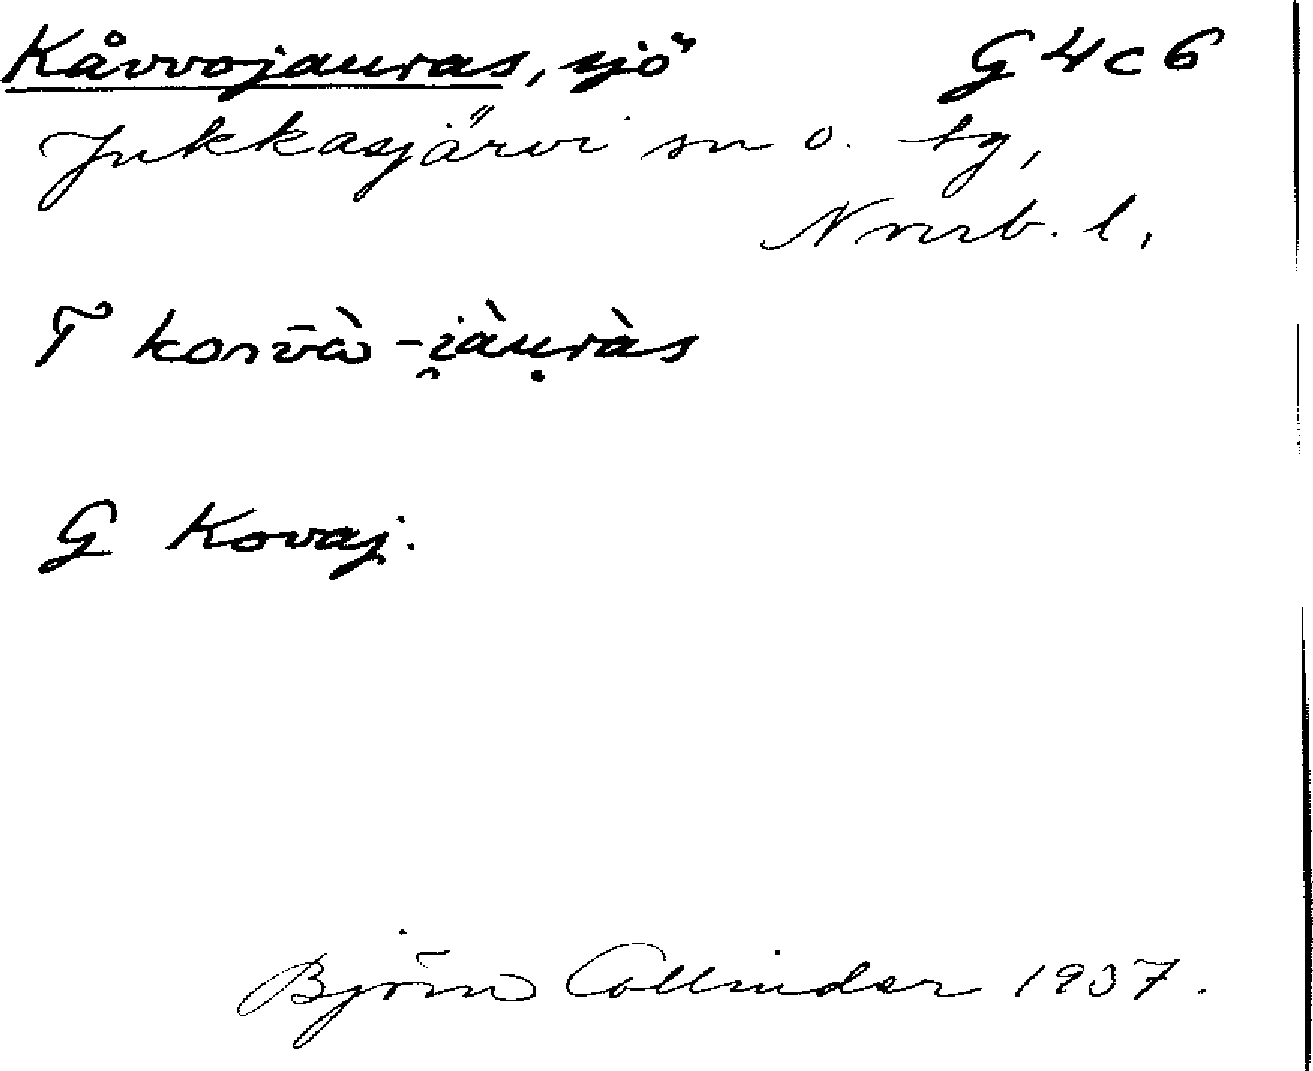 Kåvvojauras, sjö G 4 c 6
Jukkasjärvi sn o. tg,
Norrb. l.
T kovv̄à-i̯àu̩ràs
G Kovaj.
Björn Collinder 1937.